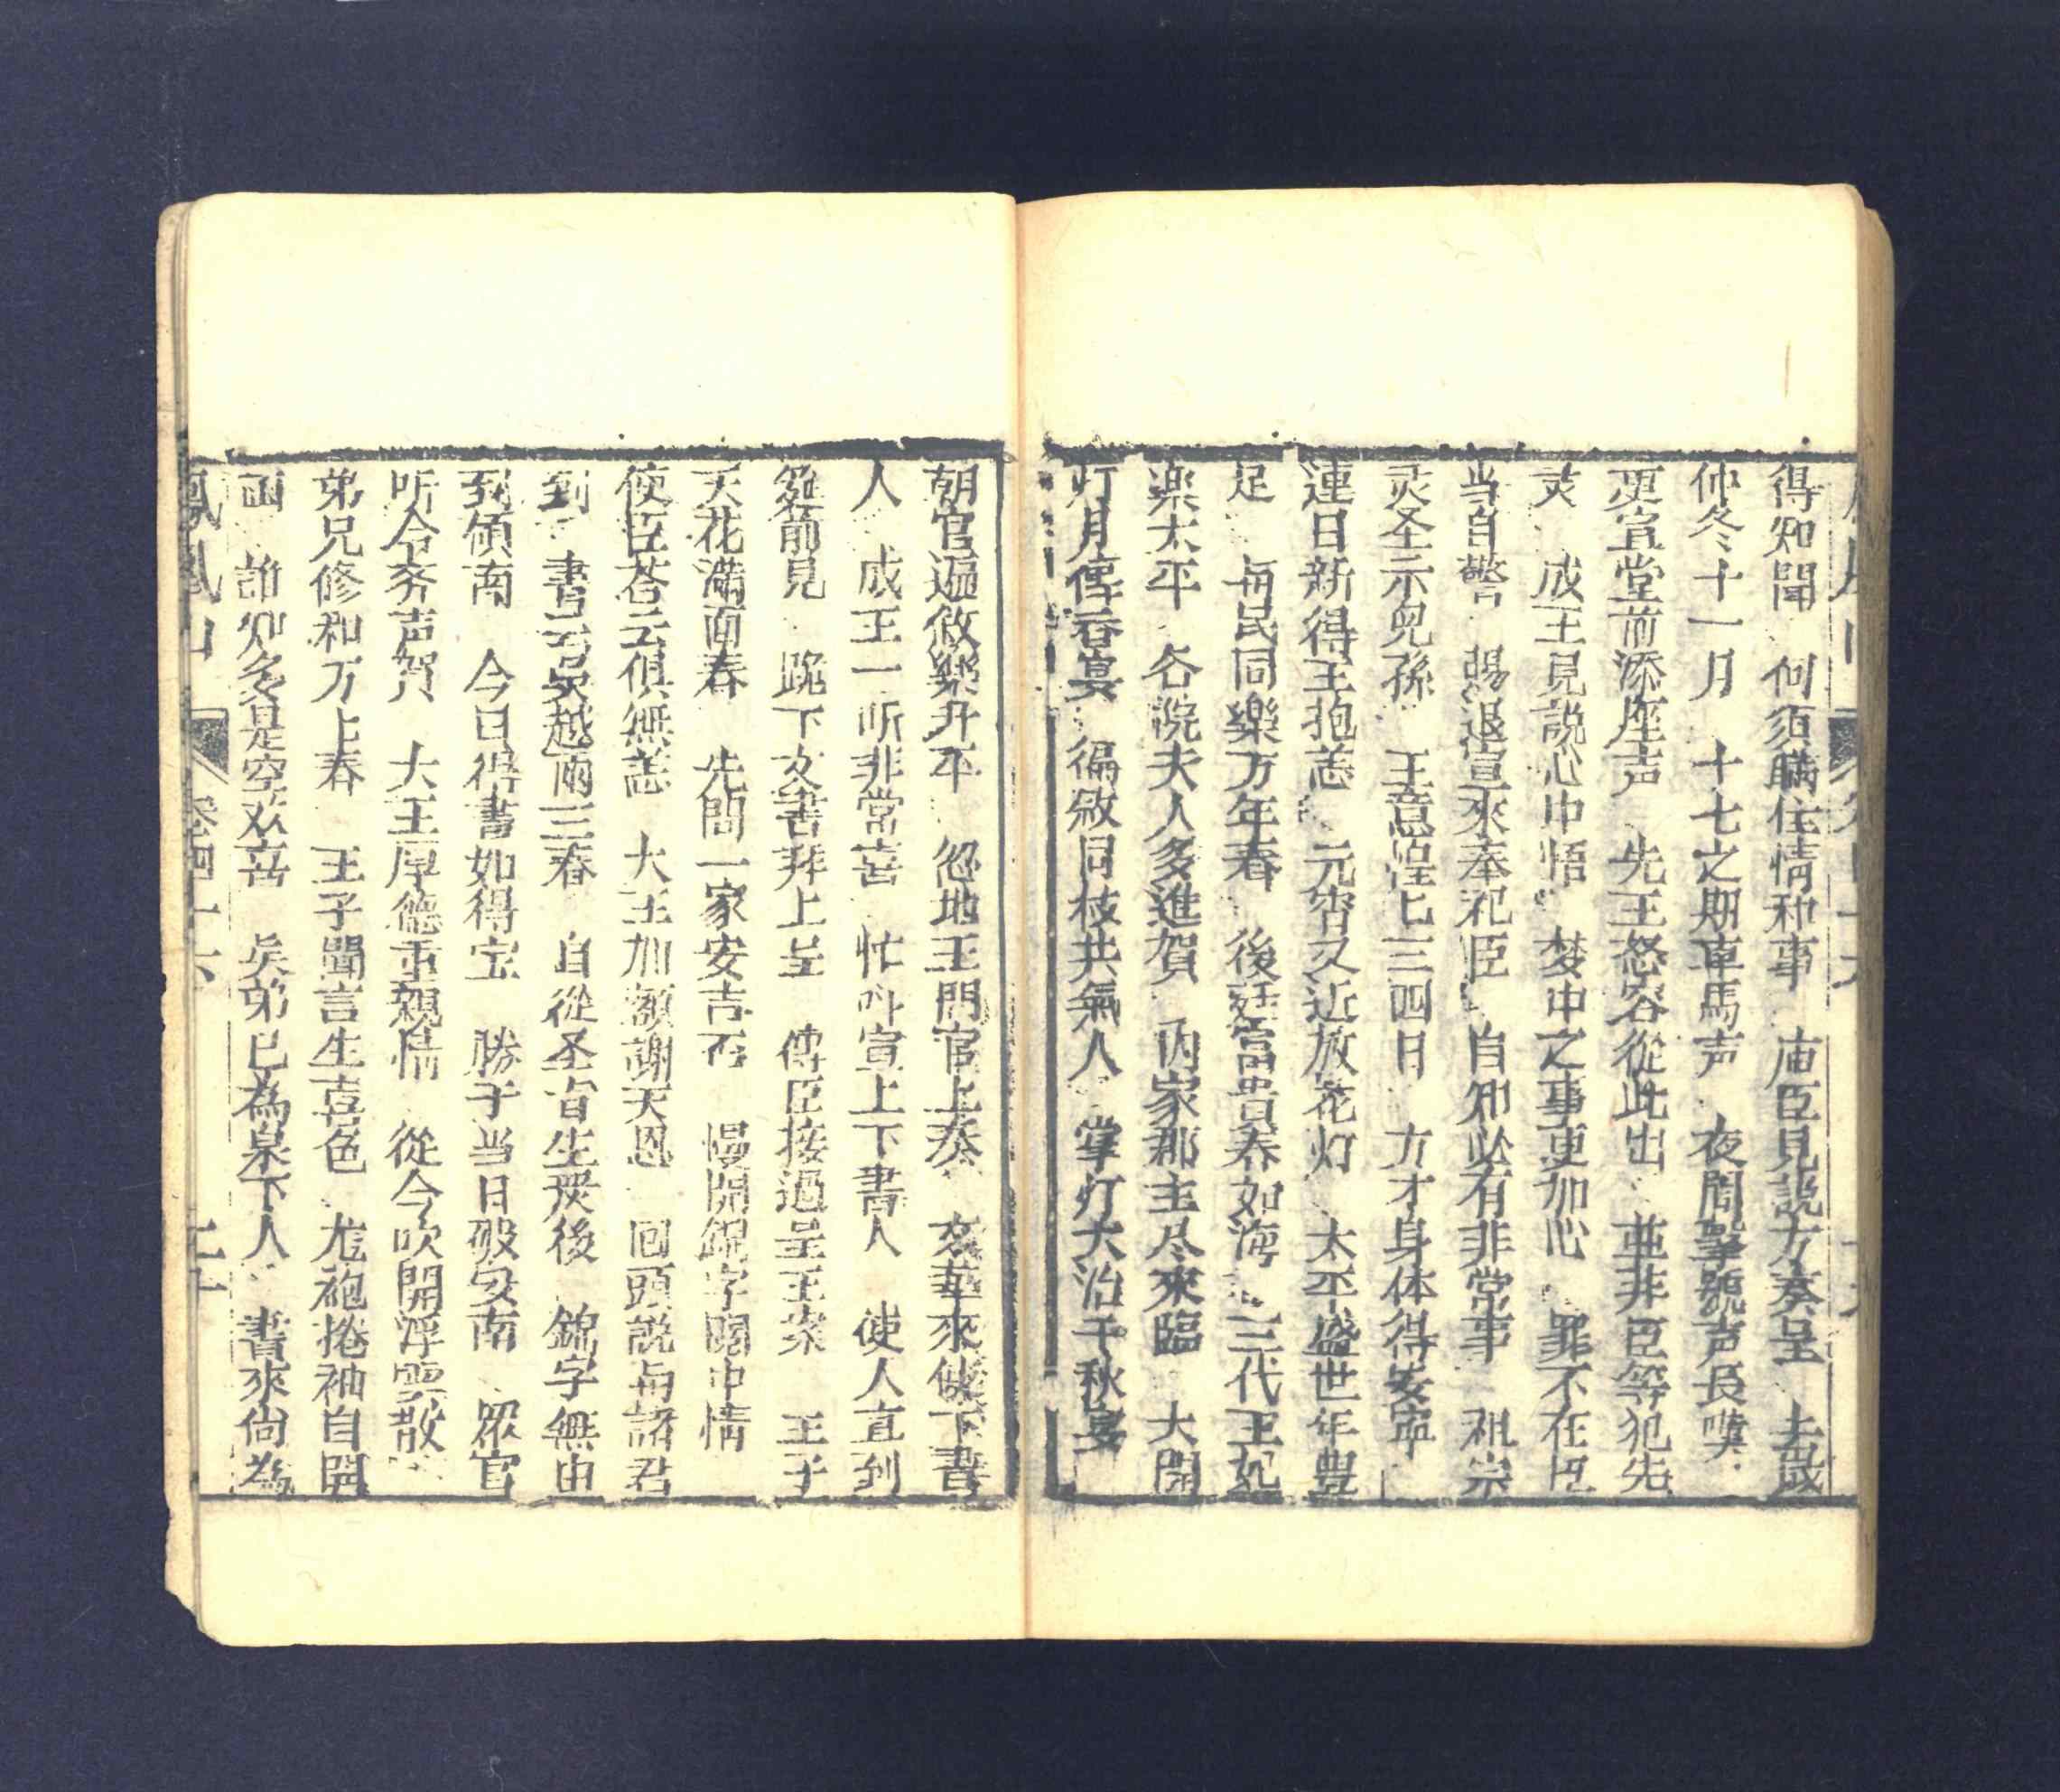 得知聞 何須瞞住情和事 庙臣見說方奏呈 去歲
仲冬十一月 十七之期車馬声 夜間擊號声長嘆
更宣堂前添座声 先王怒容從此出 並非臣等犯先
灵 成王見說心中悟 梦中之事更加心 罪不在臣
当自警 賜退宣來奉祀臣 自知必有非常事 祖宗
灵圣示兒孫 王意惶匕三四日 方才身体得安寧
連日新得王抱恙 元宵又近放花灯 太平盛世年豊
足 与民同樂万年春 後廷富貴春如海 三代王妃
楽太平 各院夫人多進賀 内家郡主尽來臨 大開
灯月傳春宴 徧敘同枝共氣人 掌灯大治千秋宴
朝官遍敘樂升平 忽地王門官上奏 京華來使下書
人 成王一听非常喜 忙叫宣上下書人 使人直到
延前見 跪下文書拜上呈 傳臣接過呈王案 王子
天花滿面春 先問一家安吉否 慢開錦字閱中情
使臣荅云俱無恙 大王加額謝天恩 回頭說与諸君
到 書云吳越兩三春 自從圣旨生災後 錦字無由
到領南 今日得書如得宝 勝于当日破安南 眾官
听令齐声賀 大王厚德重親情 從今吹開浮雲散
弟兄修和万上春 王子聞言生喜色 尨袍捲袖自開
函 誰知多是空欢喜 矣弟已為泉下人 書來尚為
鳳凰山 卷四十六